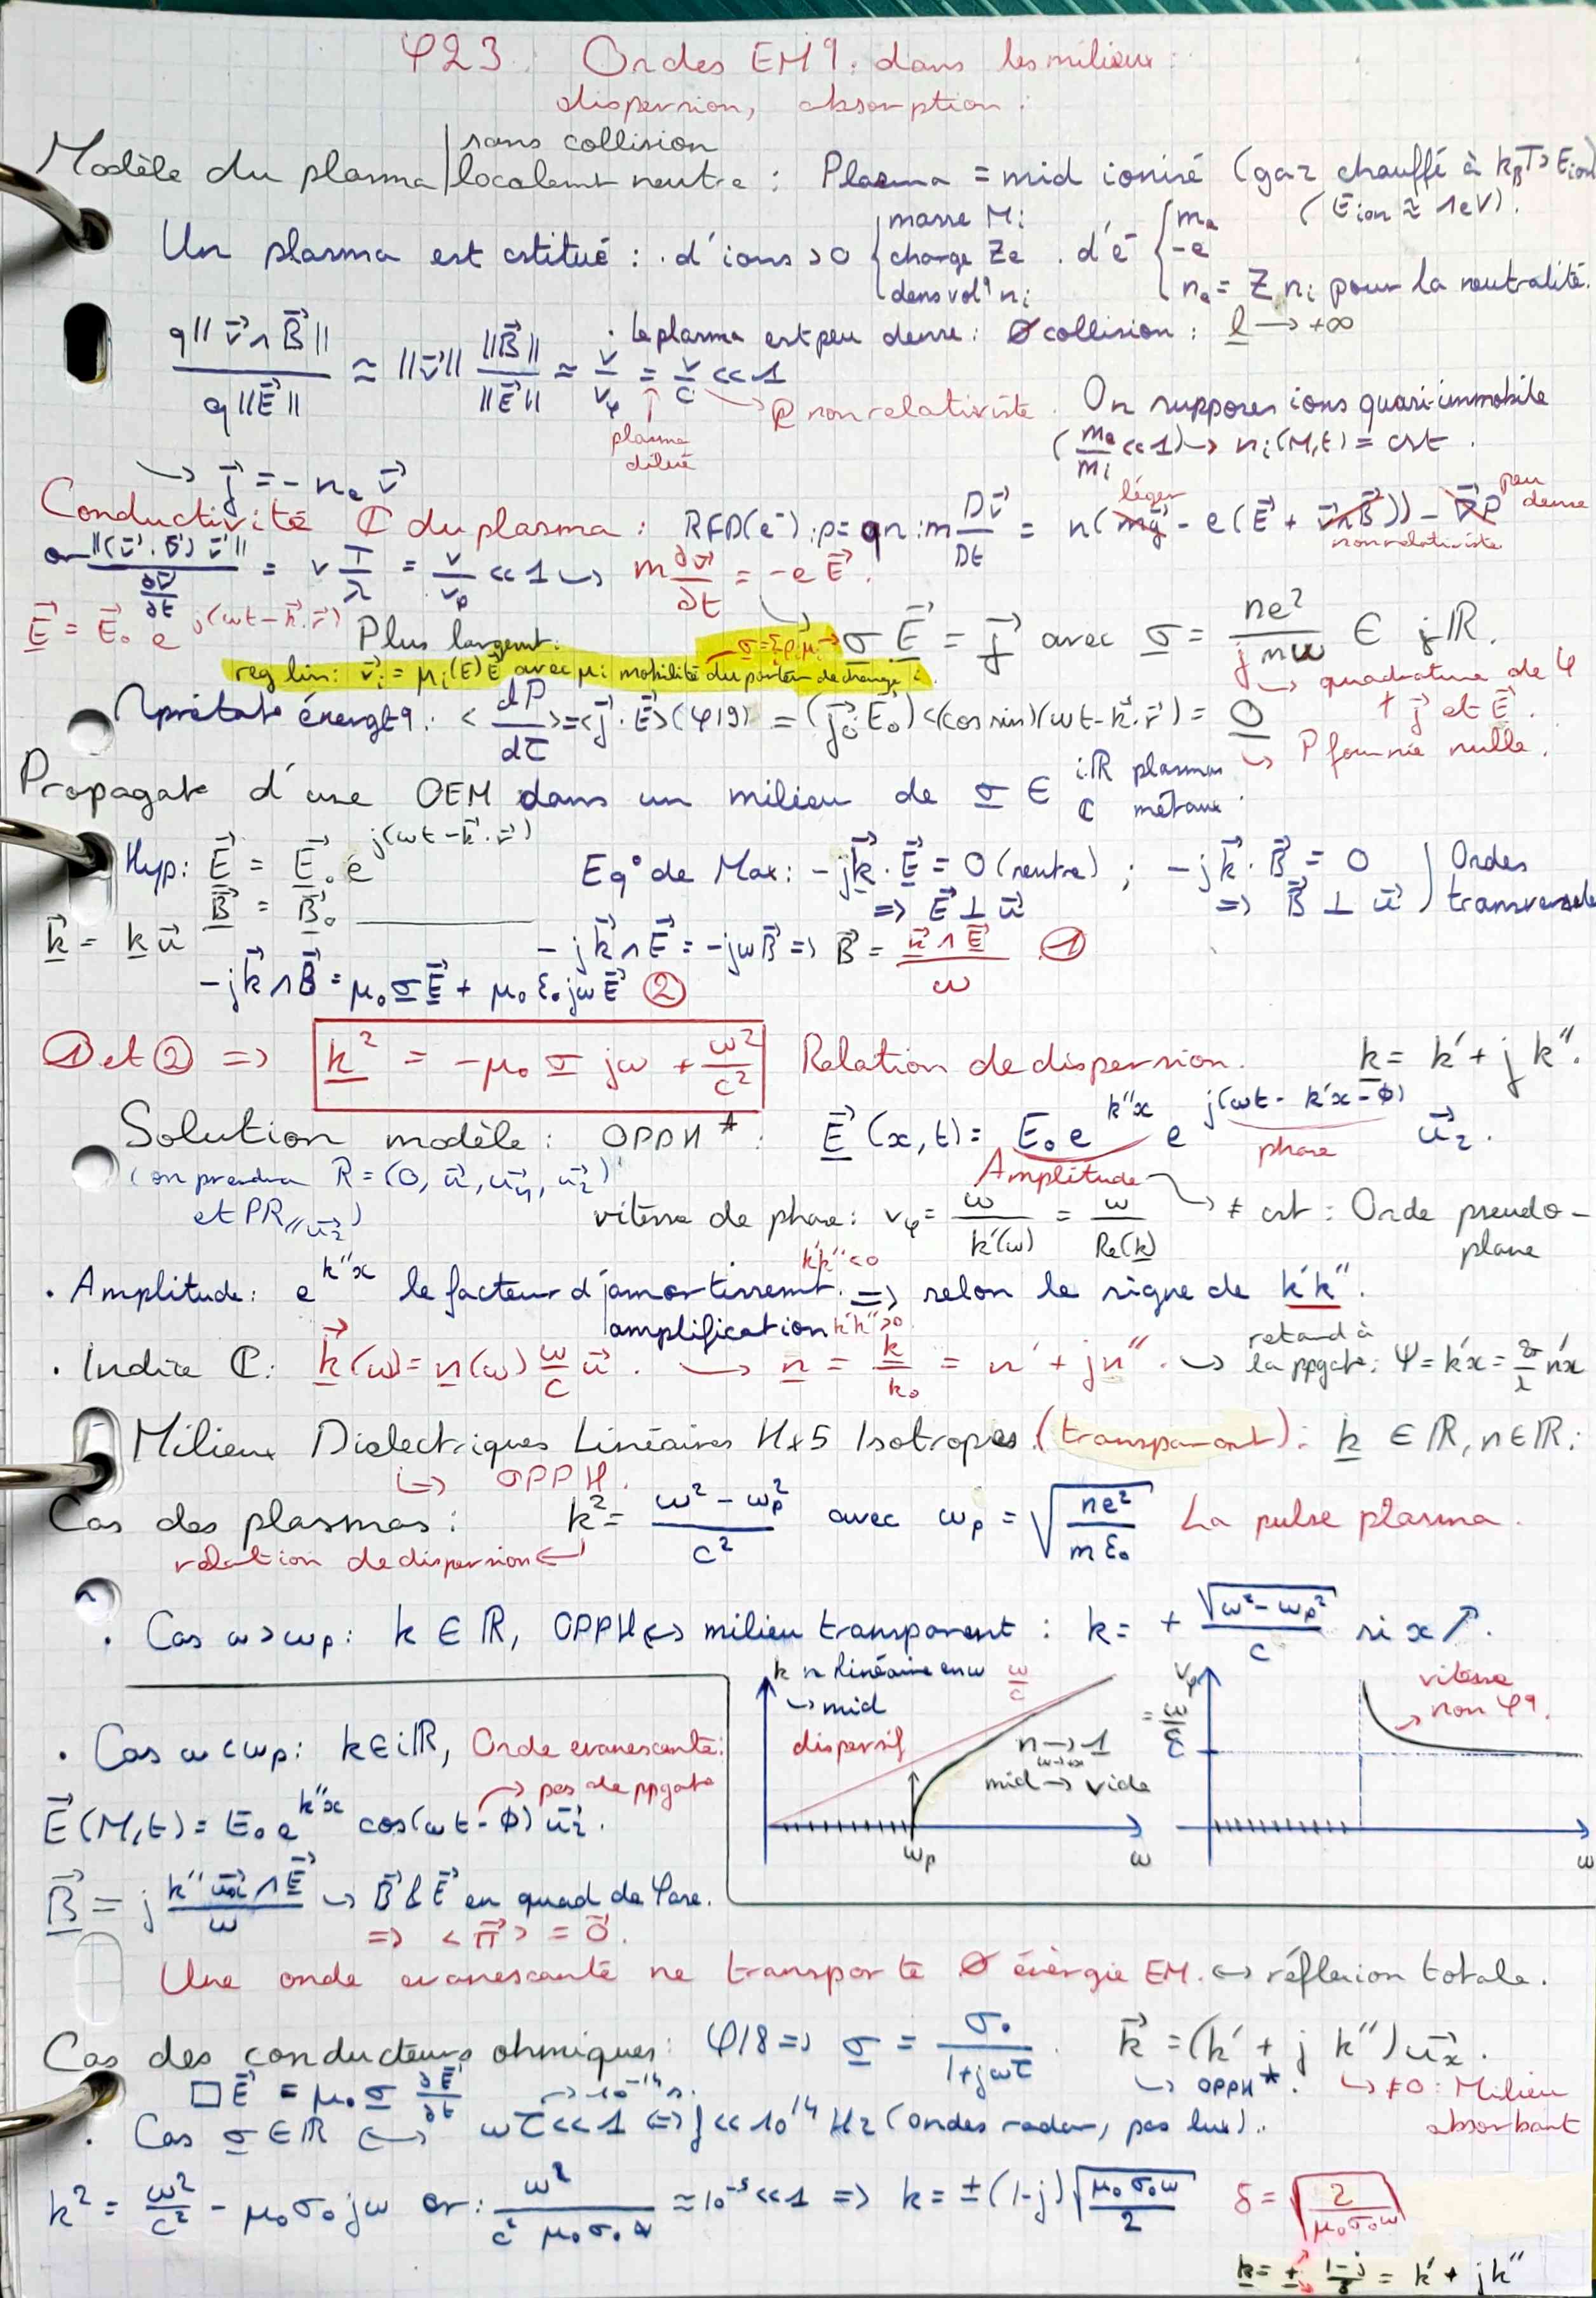 φ23. Ondes EMq. dans les milieux :
dispersion, absorption :
Modèle du plasma | sans collision / localemt neutre : Plasma = mid ionisé (gaz chauffé à k_BT > Eion)
(Eion ≈ 1eV).
Un plasma est cstitué : . d'ions >0 { masse Mi / charge Ze / dens volq ni . d'é { me / -e / ne = Z ni pour la neutralité.
. Le plasma est peu dense : Ø collision : l → +∞
q||v⃗∧B⃗|| / q||E⃗|| ≈ ||v⃗|| ||B⃗||/||E⃗|| ≈ v/vφ = v/c << 1
plasma dilué
→ e⁻ non relativiste. On supposes ions quasi-immobile
(me/mi << 1) → ni(M,t) = cst.
↪ j⃗ = - ne v⃗
Conductivité ℂ du plasma : RFD(e⁻) : ρ = qn : m Dv⃗/Dt = n(mg⃗ - e(E⃗ + v⃗∧B⃗)) - ∇⃗P
léger
non relativiste
peu dense
or ||(v⃗.∇⃗)v⃗|| / ∂v⃗/∂t = v T/λ = v/vφ << 1 ↪ m ∂v⃗/∂t = -e E⃗.
E⃗ = E⃗₀ e^j(ωt - k⃗.r⃗)
Plus largemt :
σ E⃗ = j⃗ avec σ = ne²/jmω ∈ jℝ.
σ = Σρᵢμᵢ
reg lin : v⃗i = μi(E)E⃗ avec μi mobilité du porteur de charge i.
↪ quadrature de φ
≠ j⃗ et E⃗.
Nprétat° énergtq : <dP/dτ> = <j⃗.E⃗> (φ19) = (j⃗₀.E⃗₀)<(cos sin)(ωt - k⃗.r⃗)> = 0
↪ P fournie nulle.
Propagat° d'une OEM dans un milieu de σ ∈ iℝ plasmas / ℂ métaux.
Hyp : E⃗ = E⃗₀ e^j(ωt - k⃗.r⃗)
B⃗ = B⃗₀ ______
Eq° de Max : -jk⃗.E⃗ = 0 (neutre) ; -jk⃗.B⃗ = 0 ) Ondes
=> E⃗ ⊥ u⃗ => B⃗ ⊥ u⃗ ) transversales
k⃗ = k u⃗
-jk⃗∧E⃗ = -jωB⃗ => B⃗ = k⃗∧E⃗/ω ①
-jk⃗∧B⃗ = μ₀σE⃗ + μ₀ε₀jωE⃗ ②
① et ② => k² = -μ₀ σ jω + ω²/c² Relation de dispersion. k = k' + j k".
Solution modèle : OPPH* : E⃗(x,t) = E₀ e^k"x e^j(ωt - k'x - ϕ) u⃗z.
Amplitude
phase
(on prendra R = (O, u⃗, u⃗y, u⃗z)
et PR // u⃗z)
vitesse de phase : vφ = ω/k'(ω) = ω/Re(k)
↪ ≠ cst : Onde pseudo-
plane
. Amplitude : e^k"x le facteur d' | amortissemt k'k"<0 / amplification k'k">0 => selon le signe de k'k".
. Indice ℂ : k⃗(ω) = n(ω) ω/c u⃗. ↪ n = k/k₀ = n' + jn". ↪ retard à la ppgat° : Ψ = k'x = 2π/λ n'x
Milieux Diélectriques Linéaires H×5 Isotropes (transparent) : k ∈ ℝ, n ∈ ℝ :
↪ OPPH.
Cas des plasmas : k² = ω² - ωp² / c² avec ωp = √(ne²/mε₀) La pulse plasma.
relation de dispersion ↩
. Cas ω > ωp : k ∈ ℝ, OPPH ↔ milieu transparent : k = + √(ω² - ωp²)/c si x ↗.
k n linéaire en ω
↪ mid
dispersif
ω/c
n → 1
ω→+∞
mid → vide
ωp
ω
vφ
= ω/k
c
vitesse
non φq.
ω
. Cas ω < ωp : k ∈ iℝ, Onde evanescente :
→ pas de ppgat°
E⃗(M,t) = E₀ e^k"x cos(ωt - ϕ) u⃗z.
B⃗ = j k" u⃗x∧E⃗/ω ↪ B⃗ & E⃗ en quad de φase.
=> <π⃗> = 0⃗.
Une onde evanescente ne transporte Ø énergie EM. ↔ réflexion totale.
Cas des conducteurs ohmiques : φ18 => σ = σ₀/1+jωτ. k⃗ = (k' + j k")u⃗x.
↪ OPPH*. ↪ ≠0 : Milieu
absorbant
□E⃗ = μ₀ σ ∂E⃗/∂t → 10⁻¹⁴ s.
. Cas σ ∈ ℝ ↔ ωτ << 1 ⇔ f << 10¹⁴ Hz (ondes radar, pas lux).
k² = ω²/c² - μ₀σ₀jω or : ω²/c²μ₀σ₀ω ≈ 10⁻⁵ << 1 => k = ±(1-j)√(μ₀σ₀ω/2) δ = √(2/μ₀σ₀ω)
k = ± 1-j/δ = k' + jk"